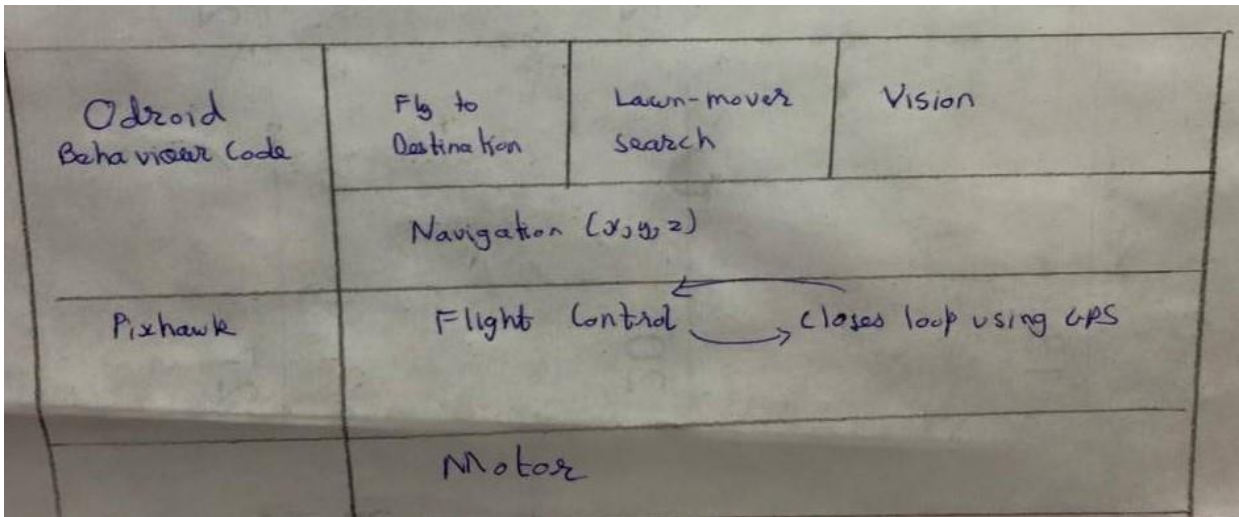 Odroid
Behaviour Code
Fly to
Destination
Lawn-mover
search
Vision
Navigation (x,y,z)
Pixhawk
Flight Control
closes loop using GPS
Motor